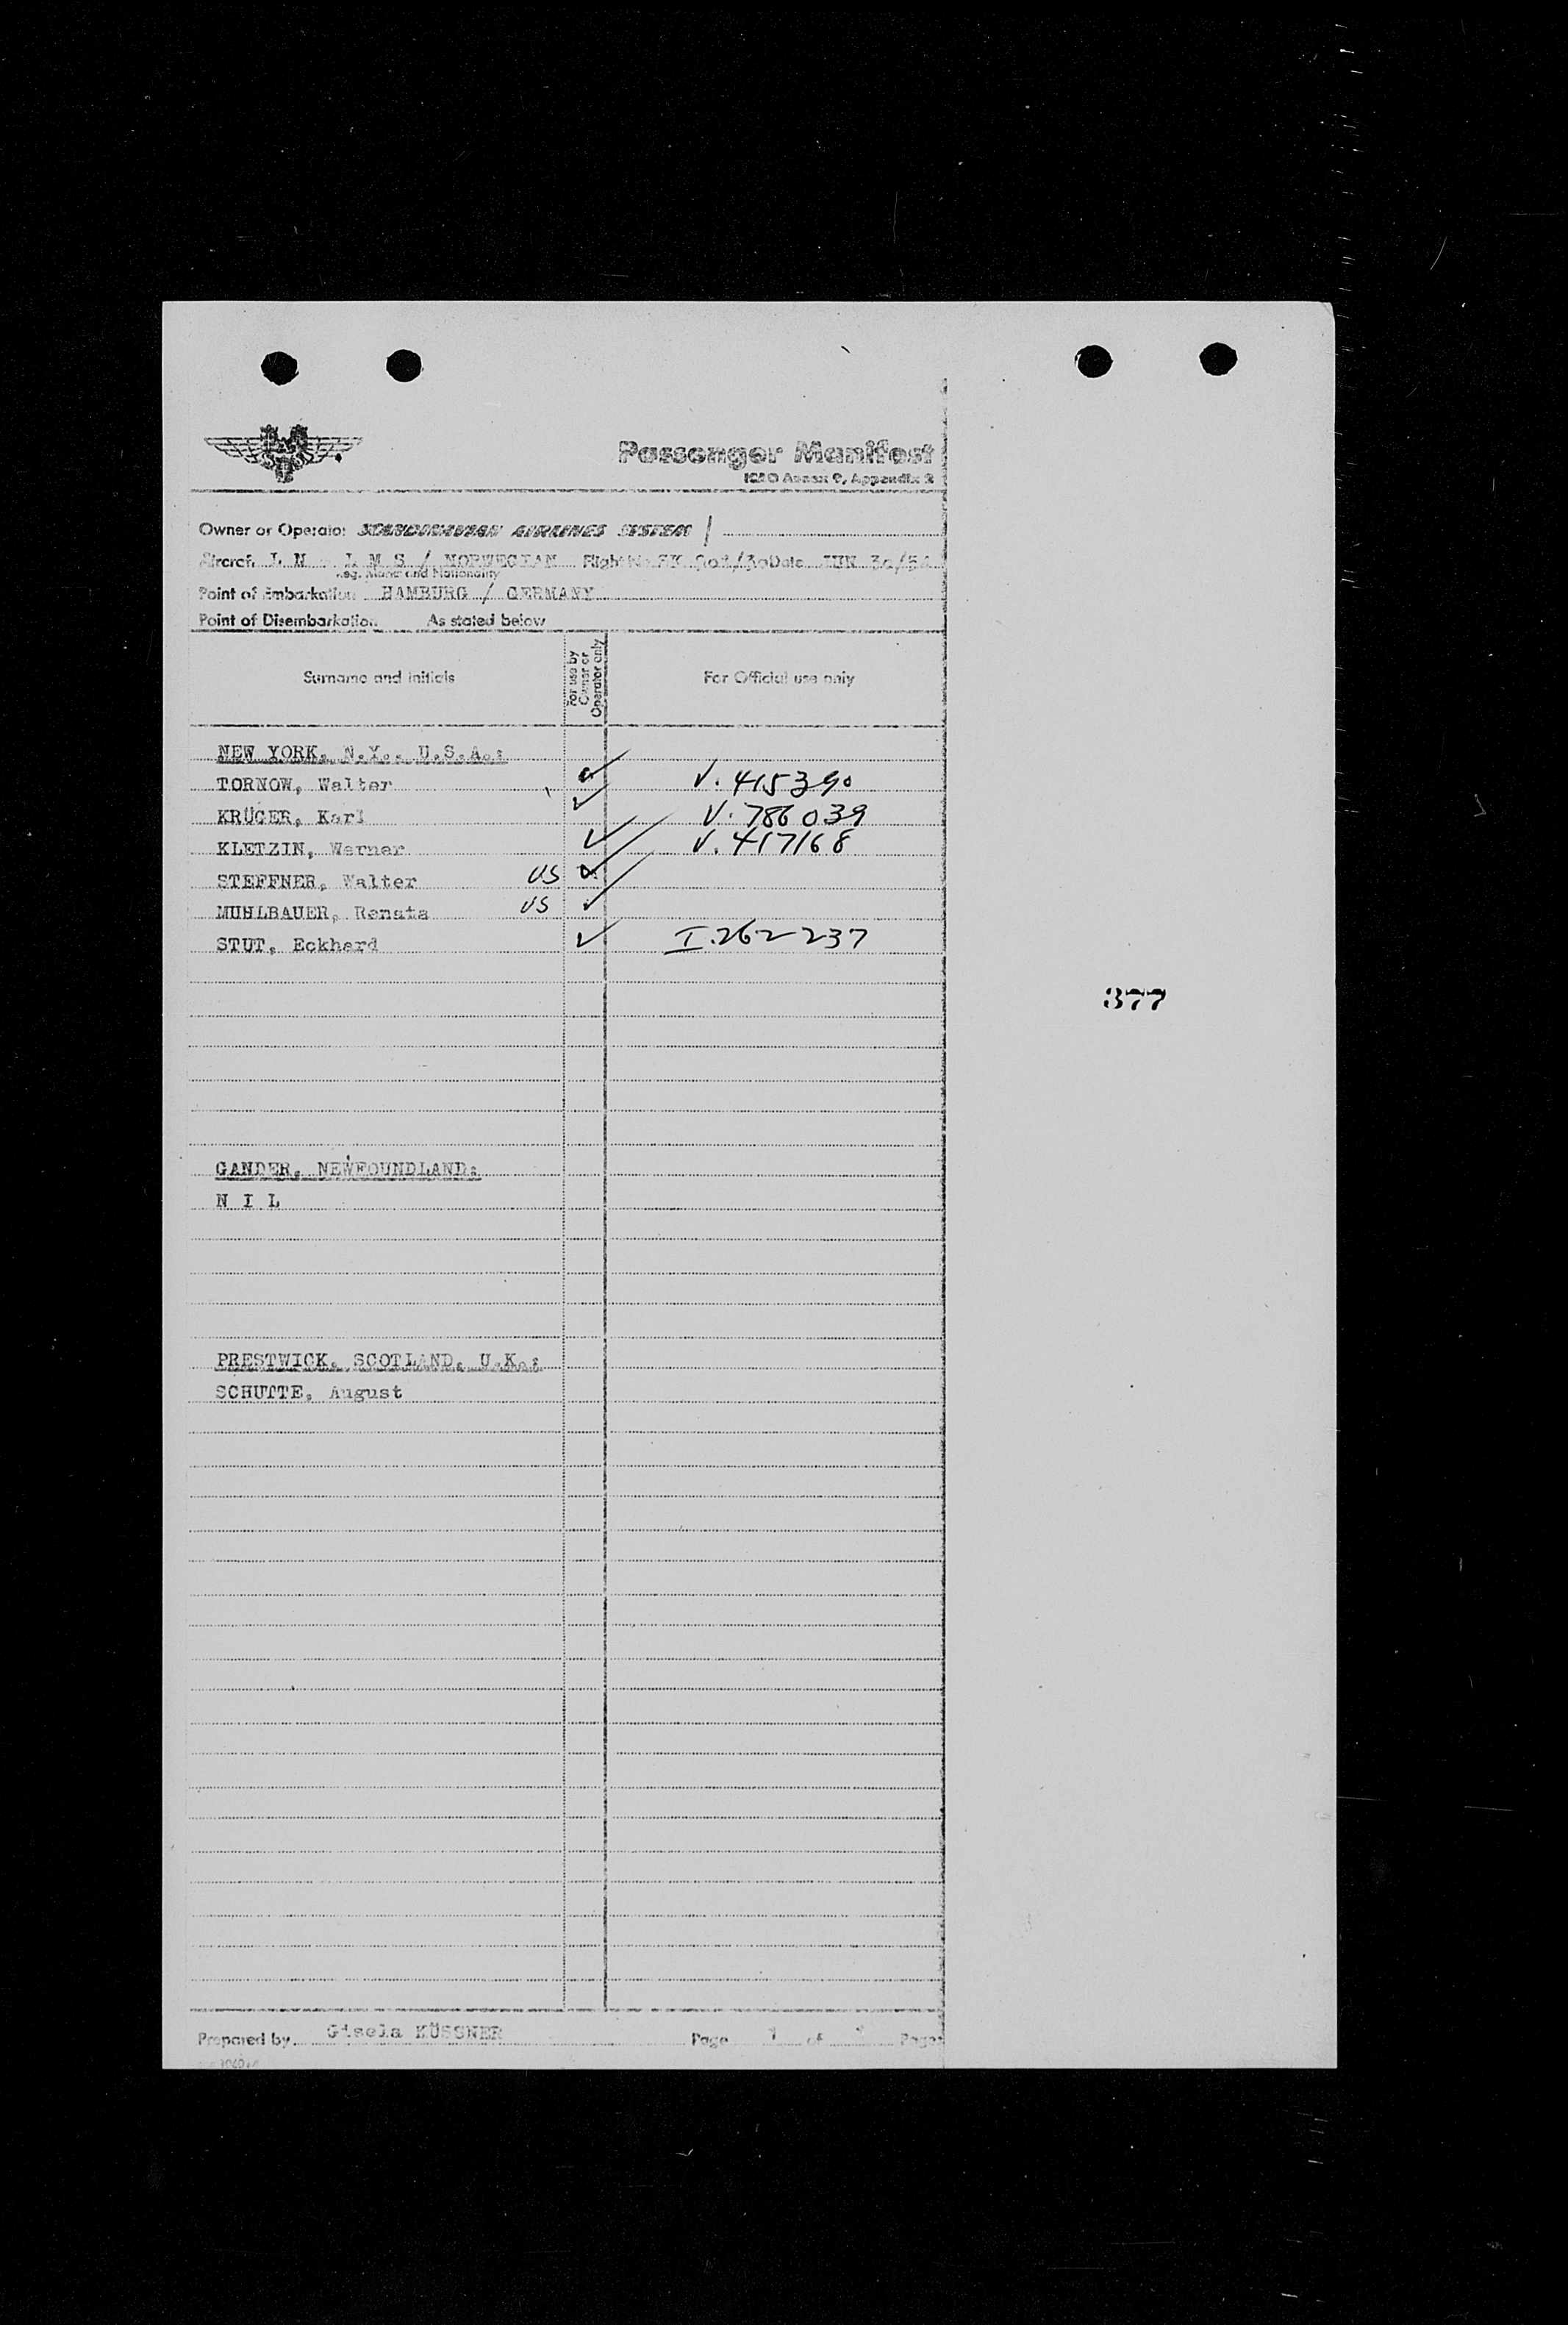 Passenger Manifest
ICAO Annex 9, Appendix 2
Owner or Operator SCANDINAVIAN AIRLINES SYSTEM /
Aircraft L N L M S / NORWEGIAN Flight No SK 901/30 Date JUN 30/54
Reg. Marks and Nationality
Point of Embarkation HAMBURG / GERMANY
Point of Disembarkation As stated below
Surname and initials For use by Owner or Operator only For Official use only
NEW YORK, N.Y., U.S.A.:
TORNOW, Walter ✓ V. 415390
KRÜGER, Karl ✓ V. 786039
KLETZIN, Werner ✓ V. 417168
STEFFNER, Walter US ✓
MUHLBAUER, Renata US ✓
STUT, Eckhard ✓ I. 262237
377
GANDER, NEWFOUNDLAND:
N I L
PRESTWICK, SCOTLAND, U.K.:
SCHUTTE, August
Prepared by Gisela KÜSSNER Page 1 of 1 Pages